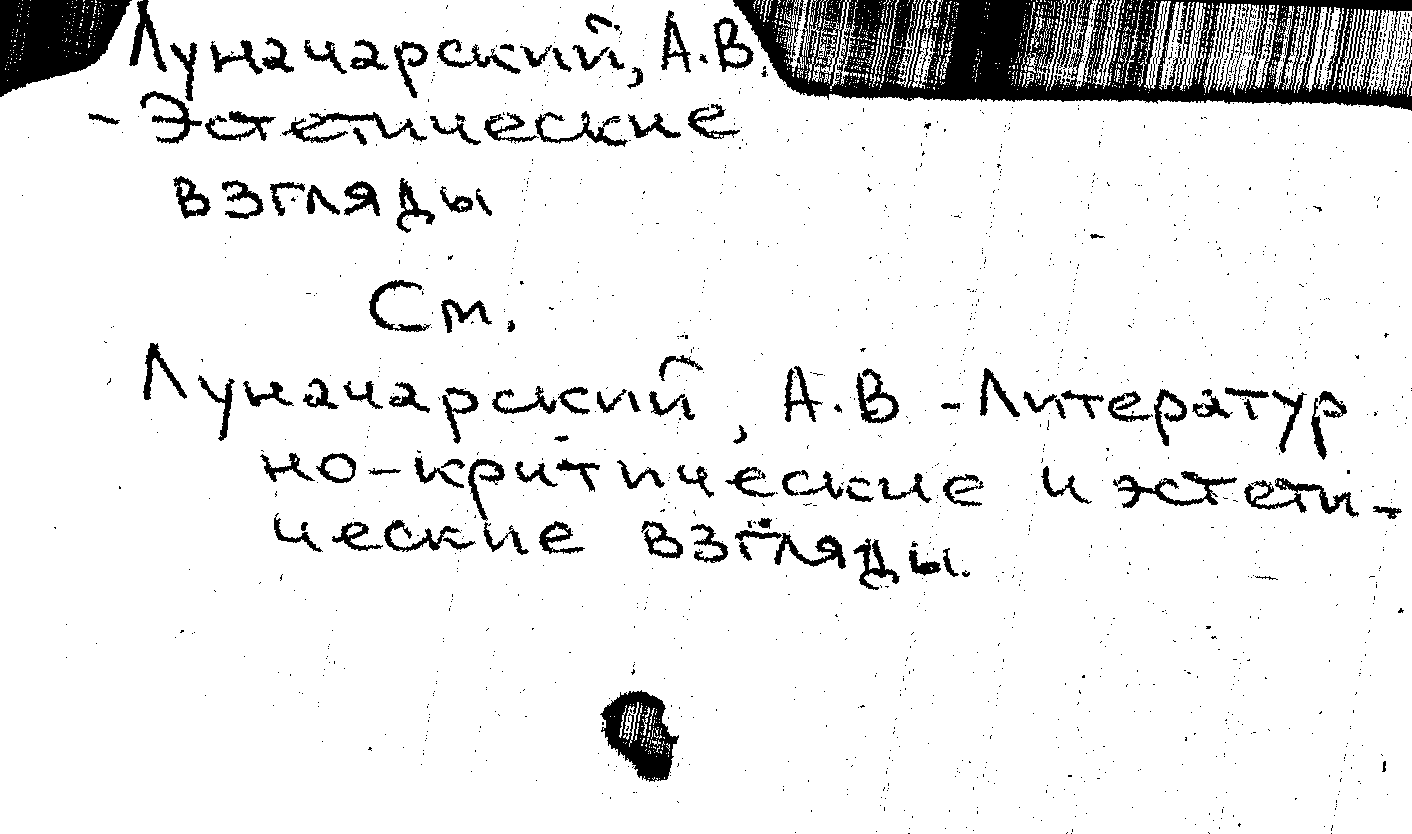 Луначарский, А.В.
- Эстетические
взгляды
См.
Луначарский, А.В - Литератур
но-критические и эстети-
ческие взгляды.